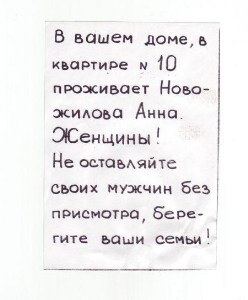 В вашем доме, в
квартире N 10
проживает Ново-
жилова Анна.
Женщины!
Не оставляйте
своих мужчин без
присмотра, бере-
гите ваши семьи!